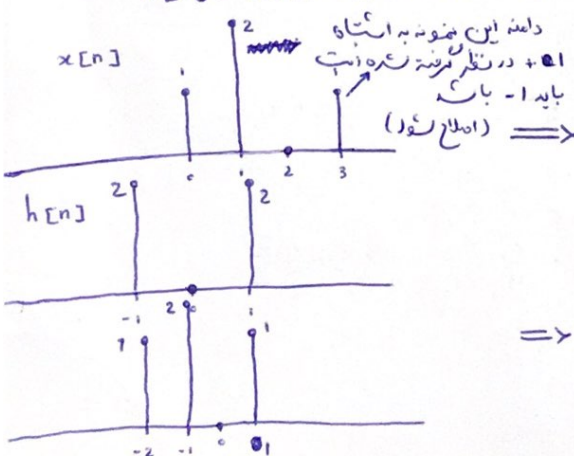 x[n]
2
1
دامنه این نمونه به اشتباه
+1 در نظر گرفته شده است
باید -1 باشد
(اصلاح شود)
⇒
0 1 2 3
h[n]
2
2
-1 1
2
1
1
⇒
-2 -1 0 1